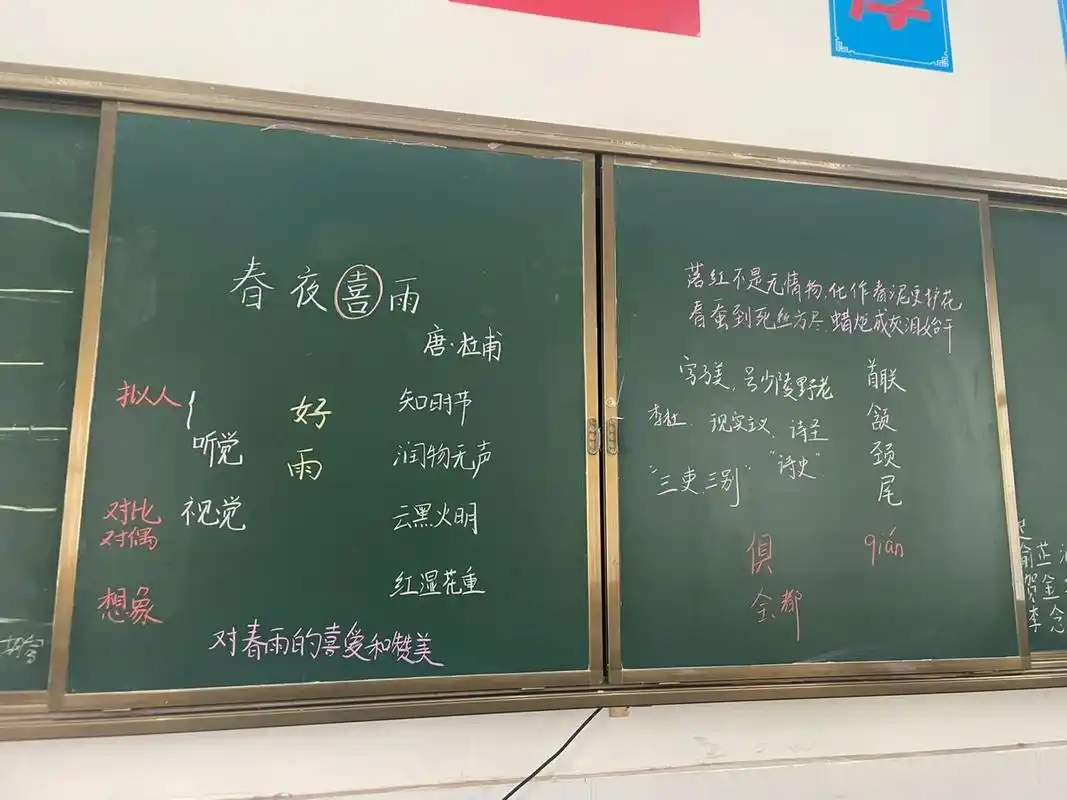 春夜喜雨
唐·杜甫
拟人
听觉
好
雨
知时节
润物无声
对比
对偶
视觉
云黑火明
想象
红湿花重
对春雨的喜爱和赞美
落红不是无情物,化作春泥更护花
春蚕到死丝方尽,蜡炬成灰泪始干
字子美、号少陵野老
李杜、现实主义、诗圣
"三吏三别" "诗史"
首联
颔
颈
尾
俱
全都
qián
贺金
李念